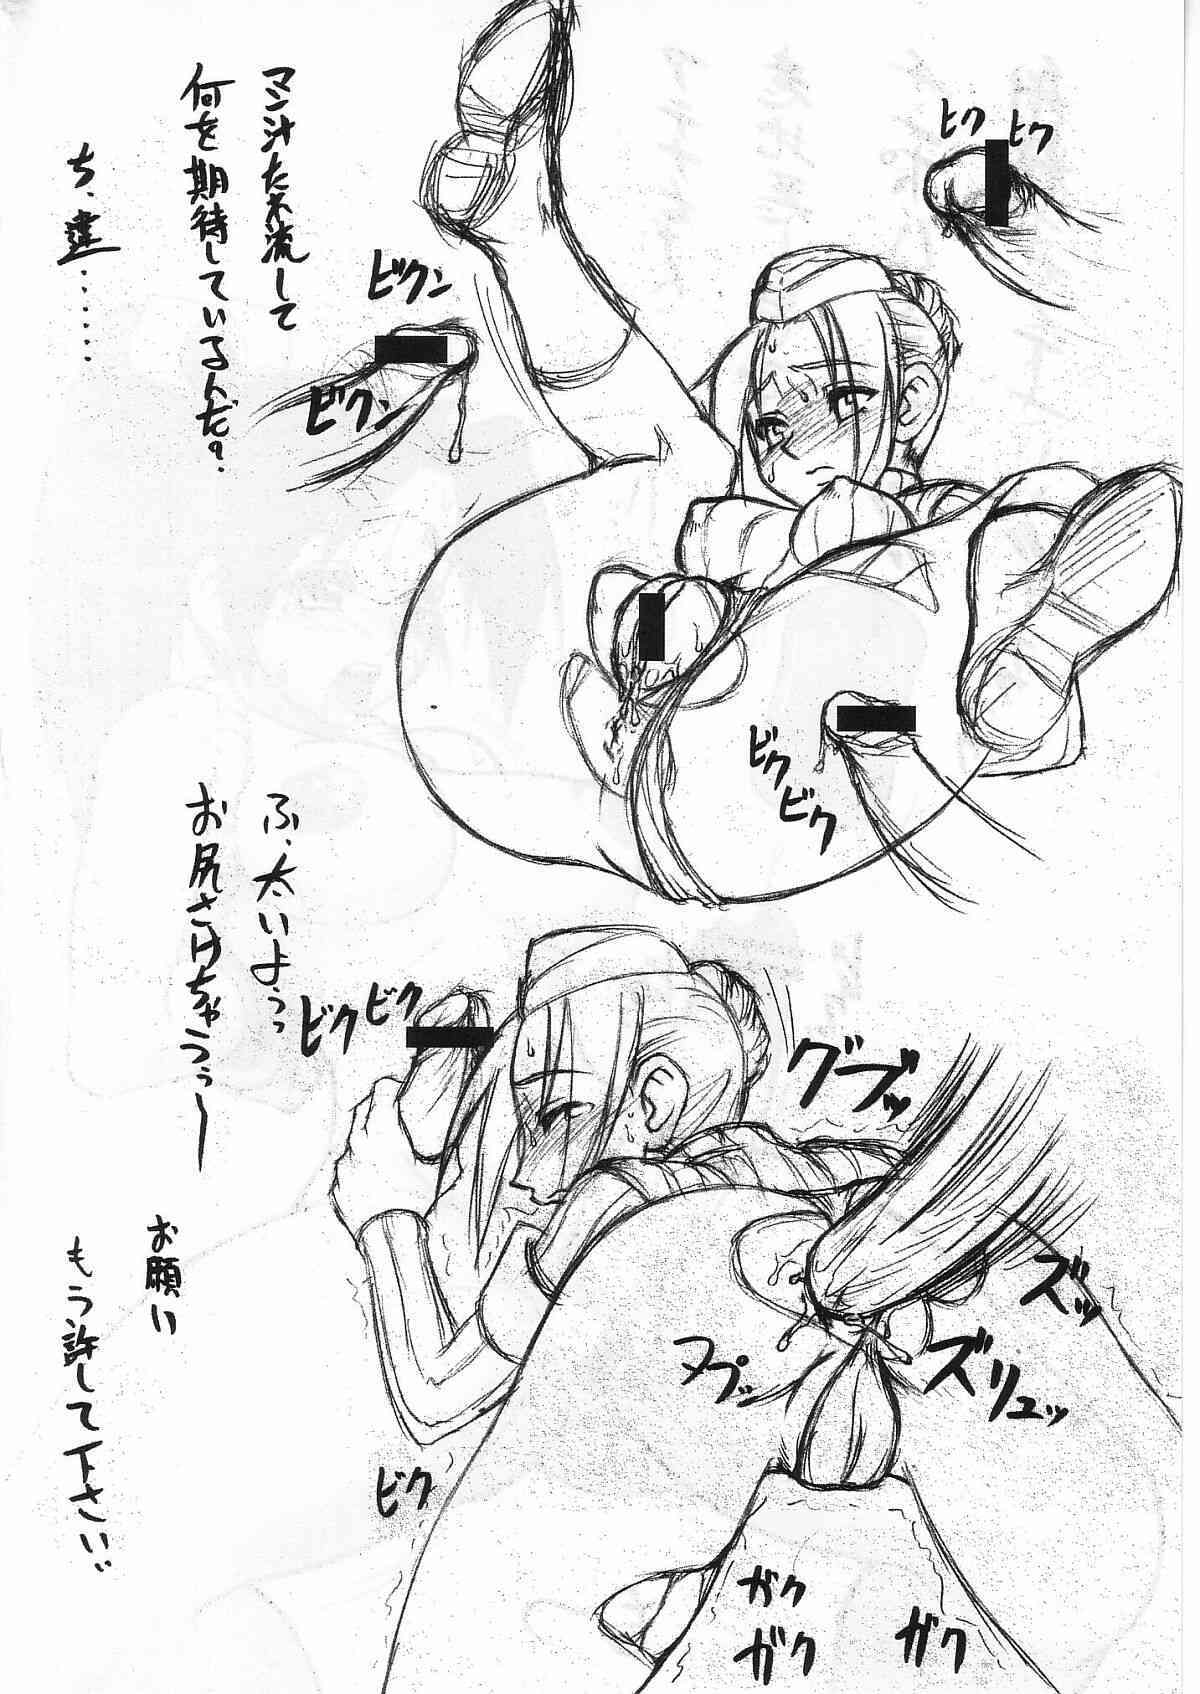 マン汁たれ流して
何を期待しているんだ?
ち、違……
ビクン
ビクン
ヒク
ヒク
ビク
ビク
ふ、太いよぅっ
お尻さけちゃうぅー
ビク
ビク
グブッ
ズッ
ズリュッ
ヌプッ
お願い
もう許して下さい
ビク
ガク
ガク
ガク